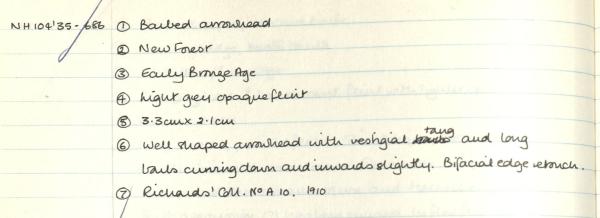 NH 104'35-686 ① Barbed arrowhead
② New Forest
③ Early Bronze Age
④ Light grey opaque flint
⑤ 3.3cm x 2.1cm
⑥ Well shaped arrowhead with vestigial tang and long
barbs curving down and inwards slightly. Bifacial edge retouch.
⑦ Richards' Coll. No A 10. 1910